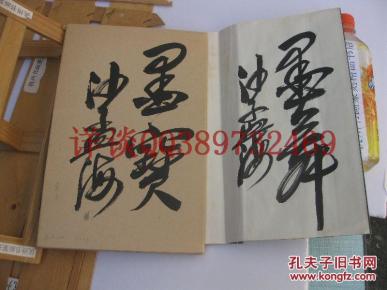 墨寶
沙孟海
墨舞
沙孟海
详谈QQ389732469
孔夫子旧书网